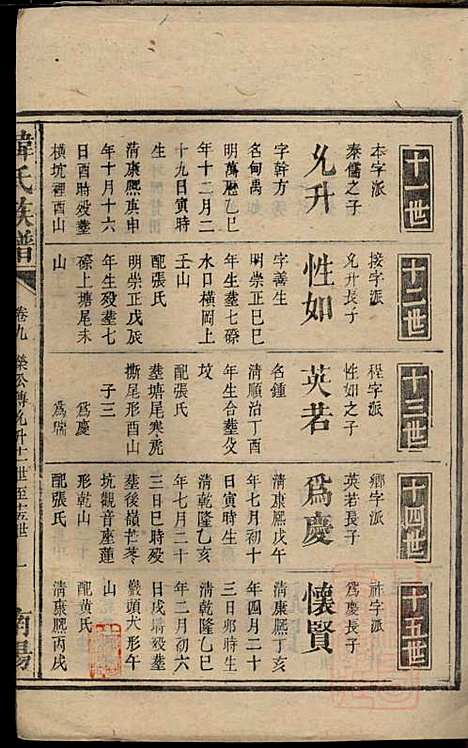 十一世
本字派
秦儒之子
允升
字幹方
名甸禹
明萬曆乙巳
年十二月二
十九日寅時
生
清康熙庚申
年十月十六
日酉時歿葬
橫坑裡酉山
十二世
接字派
允升長子
性如
字善生
明崇正己巳
年生葬七磜
水口橫岡上
壬山
配張氏
明崇正戊辰
年生歿葬七
磜上塘尾未
山
十三世
程字派
性如之子
英若
名鍾
清順治丁酉
年生合葬父
墳
配張氏
葬塘尾寒虎
擺尾形酉山
子三
為慶
為瑞
十四世
鄉字派
英若長子
為慶
清康熙戊午
年七月初十
日寅時生
清乾隆乙亥
年七月二十
三日巳時歿
葬後嶺芒苳
坑觀音座蓮
形乾山
配張氏
十五世
祉字派
為慶長子
懷賢
清康熙丁亥
年四月二十
三日卯時生
清乾隆乙巳
年二月初六
日戌時歿葬
鬢頭犬形午
山
配黃氏
清康熙丙戌
韓氏族譜
卷九
榮公傳允升十一世至十五世
一
南陽